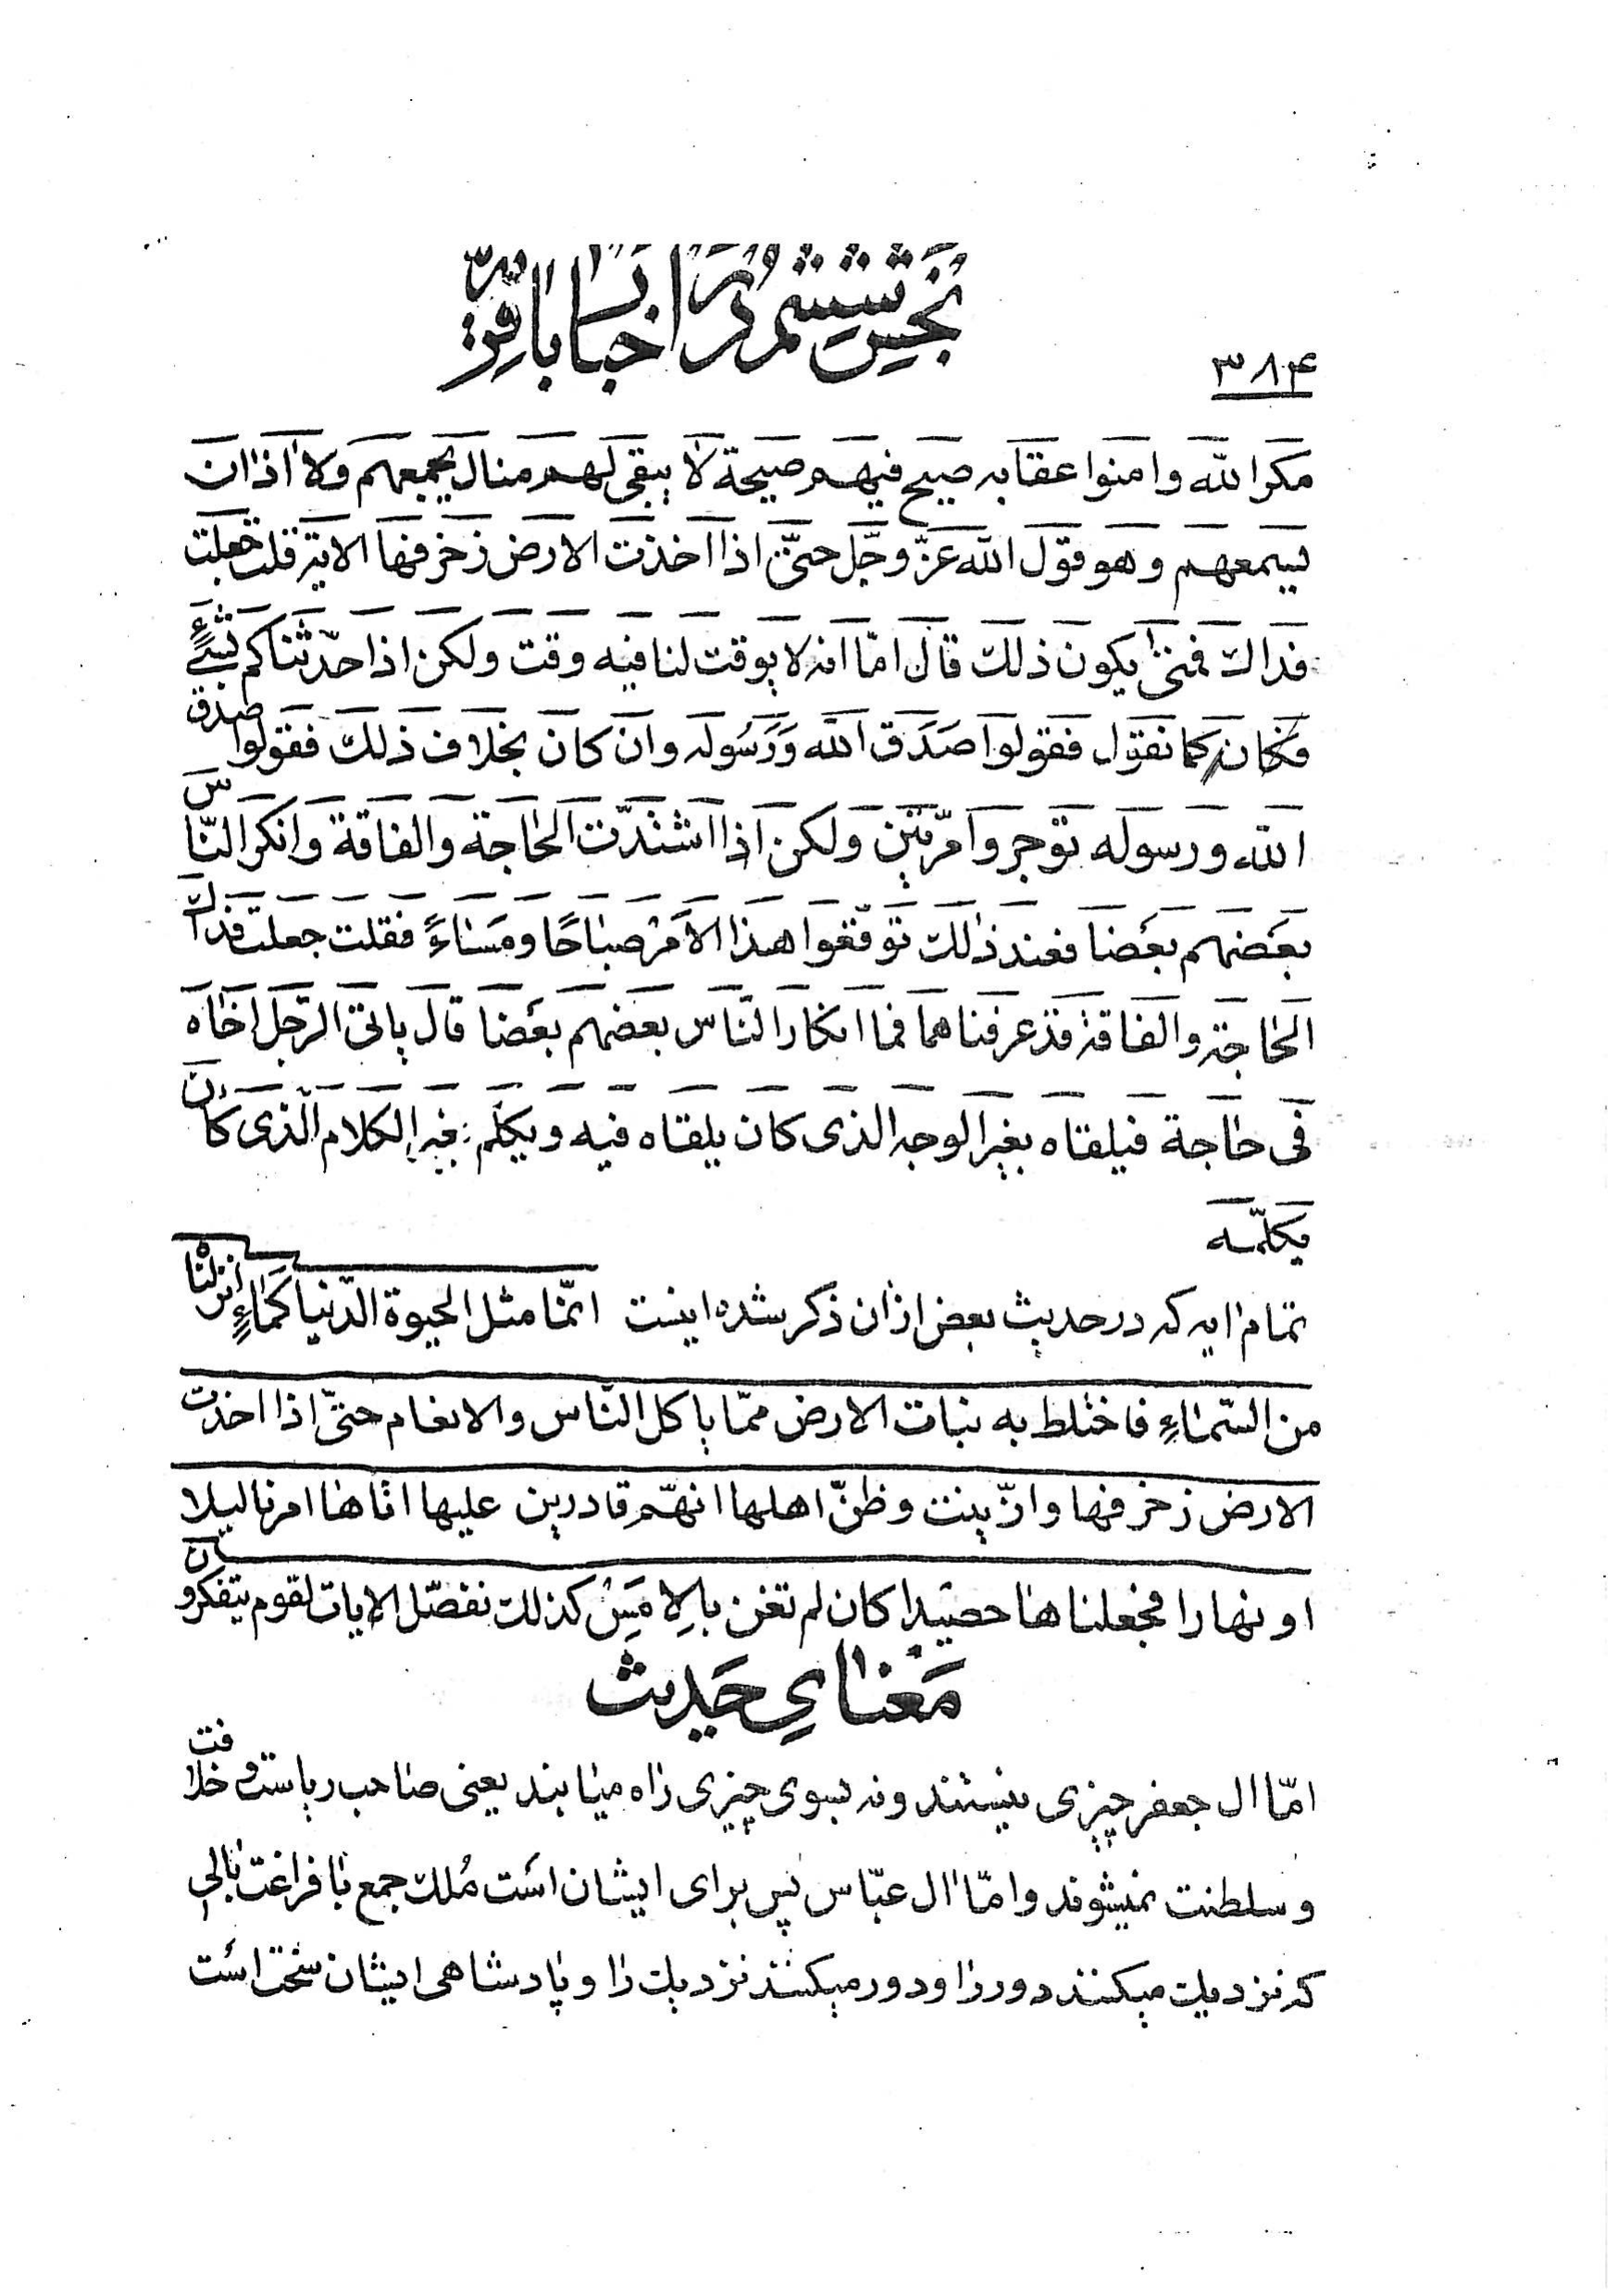 بخش ششم در اخبار باقریّه
۳۸۴
مکر الله و امنوا عقابه صیح فیهم صیحة لا یبقی لهم منال یجمعهم ولا اذان
یسمعهم و هو قول الله عزّ وجّل حتّی اذا اخذت الارض زخرفها الایة قلت جعلت
فداک فمتی یکون ذلک قال امّا انه لا یوقت لنا فیه وقت ولکن اذا حدّثناکم بشیءٍ
فکان کما نقول فقولوا صَدَق الله وَرَسُوله وان کان بخلاف ذلک فقولوا صدق
الله و رسوله توجروا مرّتین ولکن اذا اشتدّت الحاجة والفاقة وانکر النّاس
بعَضهم بعَضا فعند ذلک توقّعوا هذا الاَمرُ صباحًا ومَساءً فقلت جعلت فداک
الحاجة والفاقة قد عرفناهما فما انکار النّاس بعضهم بعَضا قال یاتی الرّجل اخاه
فی حاجة فیلقاه بغیر الوجه الذی کان یلقاه فیه ویکلّم بغیر الکلام الّذی کان
یکلّمه
تمام ایه که در حدیث بعض از ان ذکر شده اینست انّما مثل الحیوة الدّنیا کَماءٍ انزلناه
من السّماءِ فاختلط به نبات الارض ممّا یاکل النّاس والانعام حتیّ اذا اخذت
الارض زخرفها وازّینت وظنّ اهلها انهّم قادرین علیها اتاها امرنا لیلا
او نهارا فجعلناها حصیدا کان لم تغن بالِامَسِ کذلک نفصّل الایات لقوم یتفکرون
مَعنایِ حَدیث
امّا ال جعفر چیزی نیستند ونه بسوی چیزی راه مییابند یعنی صاحب ریاست و خلافت
و سلطنت نمیشوند وامّا ال عبّاس پس برای ایشان است مُلک جمع با فراغت بالی
که نزدیک میکنند دور را و دور میکنند نزدیک را و پادشاهی ایشان سخت است